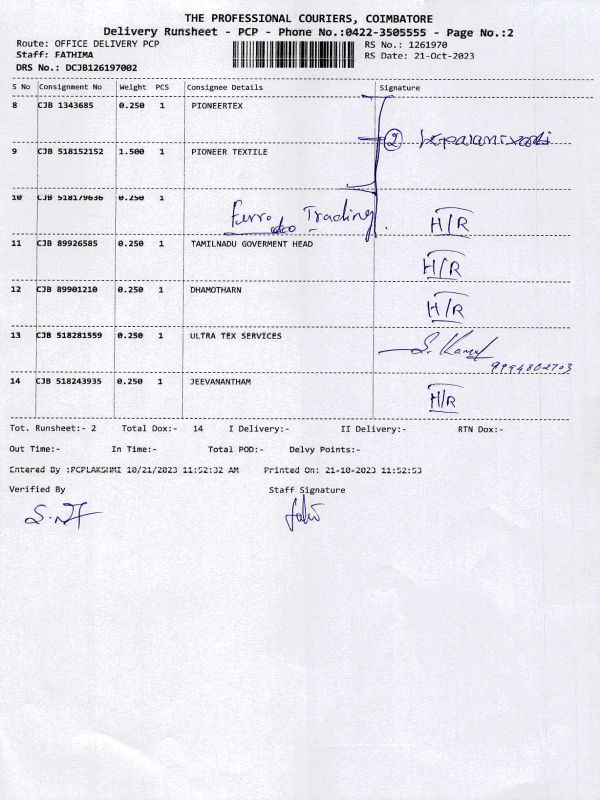 THE PROFESSIONAL COURIERS, COIMBATORE
Delivery Runsheet - PCP - Phone No.:0422-3505555 - Page No.:2
Route: OFFICE DELIVERY PCP RS No.: 1261970
Staff: FATHIMA RS Date: 21-Oct-2023
DRS No.: DCJB126197002
S No Consignment No Weight PCS Consignee Details Signature
8 CJB 1343685 0.250 1 PIONEERTEX
2
9 CJB 518152152 1.500 1 PIONEER TEXTILE
10 CJB 518179636 0.250 1
Ferro Trading H/R
11 CJB 89926585 0.250 1 TAMILNADU GOVERMENT HEAD
H/R
12 CJB 89901210 0.250 1 DHAMOTHARN
H/R
13 CJB 518281559 0.250 1 ULTRA TEX SERVICES
9994802703
14 CJB 518243935 0.250 1 JEEVANANTHAM
H/R
Tot. Runsheet:- 2 Total Dox:- 14 I Delivery:- II Delivery:- RTN Dox:-
Out Time:- In Time:- Total POD:- Delvy Points:-
Entered By :PCPLAKSHMI 10/21/2023 11:52:32 AM Printed On: 21-10-2023 11:52:53
Verified By Staff Signature